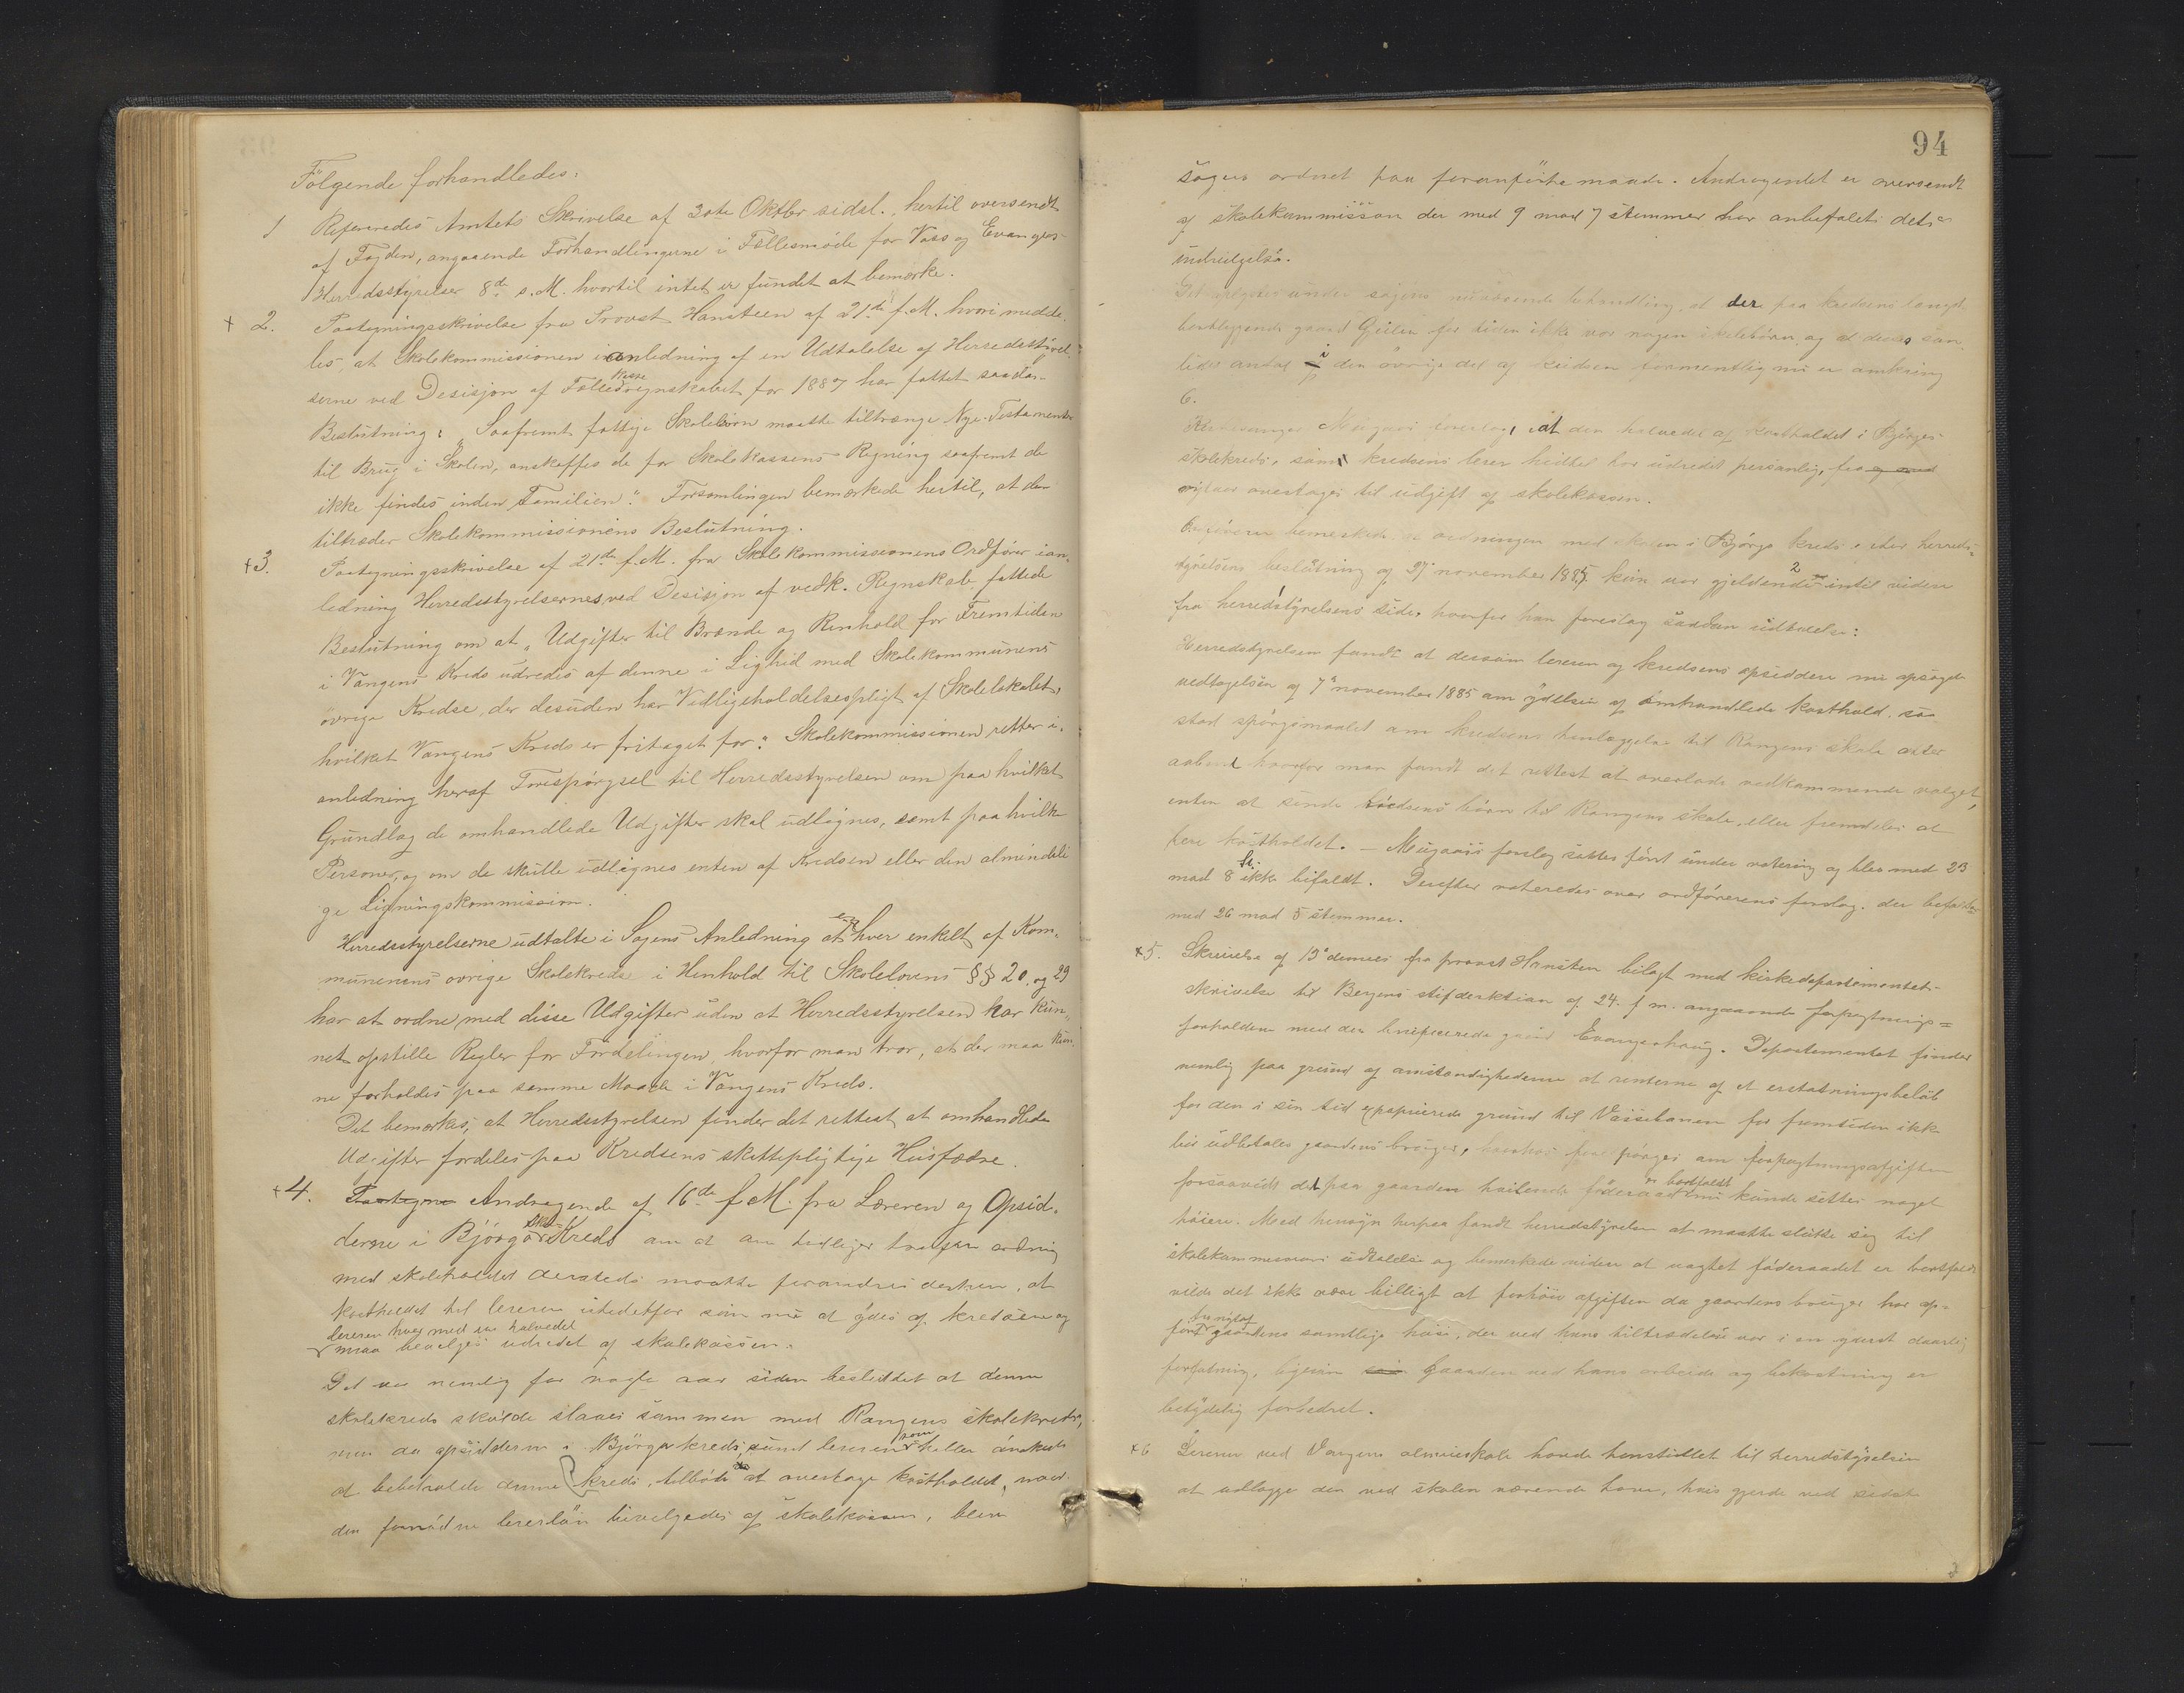 Følgende forhandledes:
1 Refereredes Amtets Skrivelse af 30te Oktbr sidstl., hertil oversendt
af Fogden, angaaende Forhandlingerne i Fællesmøde for Voss og Evangers
Herredsstyrelser 8de s. M. hvortil intet er fundet at bemærke.
+ 2. Paategningsskrivelse fra Provst Hansteen af 21de f. M. hvori medde-
les, at Skolekommissionen i anledning af en Udtalelse af Herredsstyrel-
serne ved Desisjon af Fælleskasseregnskabet for 1887 har fattet saadan
Beslutning: "Saafremt fattige Skolebørn maatte tiltrænge Nye-Testamenter
til Brug i Skolen, anskaffes de for Skolekassens Regning saafremt de
ikke findes inden Familien". Forsamlingen bemærkede hertil, at den
tiltræder Skolekommissionens Beslutning.
+3. Paategningsskrivelse af 21de f. M. fra Skolekommissionens Ordfører ian-
ledning Herredsstyrelsernes ved Desisjon af vedk. Regnskab fattede
Beslutning om at "Udgifter til Brænde og Renhold for Fremtiden
i Vangens Kreds udredes af denne i Lighed med Skolekommunens
øvrige Kredse, der desuden har Vedligeholdelsespligt af Skolelokalet,
hvilket Vangens Kreds er fritaget for". Skolekommissionen retter i-
anledning heraf Forespørgsel til Herredsstyrelsen om paa hvilket
Grundlag de omhandlede Udgifter skal udlignes, samt paa hvilke
Personer, og om de skulle udlignes enten af Kredsen eller den almindeli-
ge Ligningskommission.
Herredsstyrelserne udtalte i Sagens Anledning at hver enkelt af Kom-
munenens øvrige Skolekredse i Henhold til Skolelovens §§ 20. og 29
har at ordne med disse Udgifter uden at Herredsstyrelsen har kun-
net opstille Regler for Fordelingen, hvorfor man tror, at der maa kun-
ne forholdes paa samme Maade i Vangens Kreds.
Det bemærkes, at Herredsstyrelsen finder det rettest at omhandlede
Udgifter fordeles paa Kredsens skattepligtige Husfædre.
+4. Paategne Andragende af 16de f. M. fra Læreren og Opsid-
derne i Bjørgas Skolekreds om at den tidligere trufne ordning
med skoleholdet dersteds maatte forandres derhen, at
kostholdet til læreren istedetfor som nu at ydes af kredsen og
læreren hver med sin halvedel
maa bevilges udredet af skolekassen.
Det var nemlig for nogle aar siden besluttet at denne
skolekreds skulde slaaes sammen med Rongens skolekreds,
men da opsidderne i Bjørge kreds samt læreren som heller ønskede
at bibeholde denne kreds, tilbød at overtage kostholdet, naar
den fornødne lærerløn bevilgedes af skolekassen, blev
94
sagen ordnet paa foranførte maade. Andragendet er oversendt
af skolekommission der med 9 mod 7 stemmer har anbefalet dets
indvilgelse.
Det oplystes under sagens nuværende behandling, at der paa kredsens længst
bortliggende gaard Geilen for tiden ikke var nogen skolebørn og at deres sam-
lede antal i den øvrige del af kredsen formentlig nu er omkring
6.
Mugaas foreslog, at den halvedel af kostholdet i Bjørges
skolekreds, som kredsens lærer hidtil har udredet personlig, fra og med
nytaar overtages til udgift af skolekassen.
Ordføreren bemærkede at ordningen med skolen i Bjørge kreds efter herreds-
styrelsens beslutning af 27 november 1885 kun var gjeldende indtil videre
fra herredstyrelsens side, hvorfor han foreslog saadan udtalelse:
Herredsstyrelsen fandt at dersom læreren og kredsens opsiddere nu opsagde
vedtagelsen af 7de november 1885 om ydelsen af omhandlede kosthold, saa
stod spørgsmaalet om kredsens henlæggelse til Rongens skole atter
aabent hvorfor man fandt det rettest at overlade vedkommende valget,
enten at sende kredsens børn til Rongens skole, eller fremdeles at
bære kostholdet. – Mugaas forslag sattes først under votering og blev med 23
mod 8 st. ikke bifaldt. Derefter voteredes over ordførerens forslag. der befaldtes
med 26 mod 5 stemmer.
+5. Skrivelse af 13de dennes fra provst Hansten bilagt med kirkedepartementets
skrivelse til Bergens stifdirektion af 24. f m. angaaende forpagtnings-
forholdene med den beneficerede gaard Evangerhaug. Departementet finder
nemlig paa grund af omstændighederne at renterne af et erstatningsbeløb
for den i sin tid expropierede grund til Vossebanen for fremtiden ikke
bør udbetales gaardens bruger, hvorhos forespørges om forpagtningsafgiften
forsaavidt det paa gaarden hvilende føderaad nu er bortfaldt kunde settes noget
høiere. Med hensyn herpaa fandt herredstyrelsen at maatte slutte sig til
skolekommissionens udtalelse og bemerkede videre at uagtet føderaadet er bortfaldt
vilde det ikke være billigt at forhøie afgiften da gaardens bruger har op-
ført tunigtaf gaardens samtlige huse, der ved hans tiltrædelse var i en yderst daarlig
forfatning, ligesom gaarden ved hans arbeide og bekostning er
betydelig forbedret.
+6 Læreren ved Vangens almueskole havde henstillet til herredstyrelsen
at udlægge den ved skolen værende have, hvis gjerde ved sidst